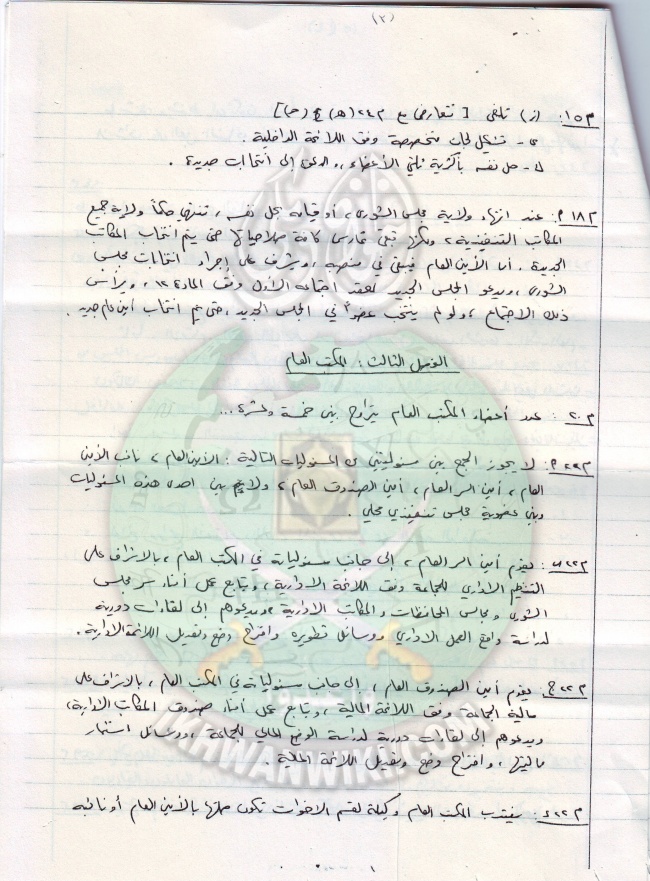 (٢)
م١٥: (ز) تلغى [تتعارض مع م٢٤ (هـ) و (ح)]
ى - تشكيل لجان متخصصة وفق اللائحة الداخلية.
ل - حل نفسه بأكثرية ثلثي الأعضاء، والدعوة إلى انتخابات جديدة.
م١٨ م: عند انتهاء ولاية مجلس الشورى، أو قيامه بحل نفسه، تنتهي حكماً ولاية جميع
المكاتب التنفيذية، ولكنها تبقى تمارس كافة صلاحياتها حتى يتم انتخاب المكاتب
الجديدة. أما الأمين العام فيبقى في منصبه، ويشرف على إجراء انتخابات مجلس
الشورى، ويدعو المجلس الجديد لعقد اجتماعه الأول وفق المادة ١٢، ويرأس
ذلك الاجتماع، ولو لم ينتخب عضواً في المجلس الجديد، حتى يتم انتخاب أمين عام جديد.
الفصل الثالث: المكتب العام
م٢٠: عدد أعضاء المكتب العام يتراوح بين خمسة وعشرة...
م٢٢ م: لا يجوز الجمع بين مسئوليتين من المسئوليات التالية: الأمين العام، نائب الأمين
العام، أمين السر العام، أمين الصندوق العام، ولا بين احدى هذه المسئوليات
وبين عضوية مجلس تنفيذي محلي.
م٢٢ ب: يقوم أمين السر العام، إلى جانب مسئولياته في المكتب العام، بالاشراف على
التنظيم الاداري للجماعة وفق اللائحة الادارية، ويتابع عمل أمناء سر مجلس
الشورى ومجالس المحافظات والمكاتب الادارية، ويدعوهم إلى لقاءات دورية
لدراسة واقع العمل الاداري ووسائل تطويره واقتراح وضع وتعديل اللائحة الادارية.
م٢٢ ج: يقوم أمين الصندوق العام، إلى جانب مسئولياته في المكتب العام، بالاشراف على
مالية الجماعة وفق اللائحة المالية، ويتابع عمل أمناء صندوق المكاتب الادارية،
ويدعوهم إلى لقاءات دورية لدراسة الوضع المالي للجماعة، ووسائل استثمار
ماليتها، واقتراح وضع وتعديل اللائحة المالية.
م٢٢ د: ينتدب المكتب العام وكيلة لقسم الاخوات تكون صلتها بالأمين العام أو نائبه
IKHWANWIKI.COM